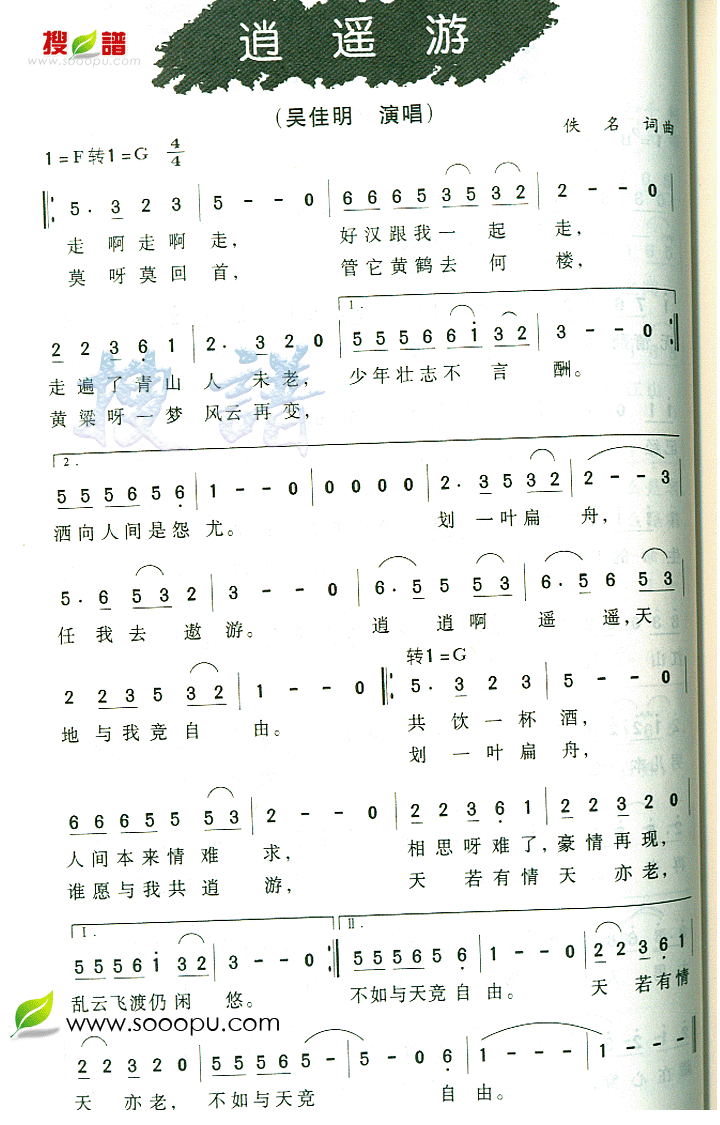 搜譜
www.sooopu.com
逍遥游
(吴佳明 演唱)
佚名 词曲
1=F转1=G 4/4
5. 3 2 3 | 5 - - 0 | 6 6 6 5 3 5 3 2 | 2 - - 0 |
走 啊走啊 走, 好汉跟我一 起 走,
莫 呀莫回 首, 管它黄鹤去 何 楼,
1.
2 2 3 6 1 | 2. 3 2 0 | 5 5 5 6 6 1 3 2 | 3 - - 0 :|
走遍了青山 人 未老, 少年壮志不 言 酬。
黄粱呀一梦 风云再变,
2.
5 5 5 6 5 6 | 1 - - 0 | 0 0 0 0 | 2. 3 5 3 2 | 2 - - 3 |
洒向人间是怨 尤。 划 一叶扁 舟,
5. 6 5 3 2 | 3 - - 0 | 6. 5 5 5 3 | 6. 5 6 5 3 |
任我去 遨游。 逍 逍啊 遥 遥,天
转1=G
2 2 3 5 3 2 | 1 - - 0 |: 5. 3 2 3 | 5 - - 0 |
地与我竞自 由。 共 饮一杯 酒,
划 一叶扁 舟,
6 6 6 5 5 5 3 | 2 - - 0 | 2 2 3 6 1 | 2 2 3 2 0 |
人间本来情难 求, 相思呀难了,豪情再现,
谁愿与我共逍 游, 天 若有情天 亦老,
I.
II.
5 5 5 6 1 3 2 | 3 - - 0 :| 5 5 5 6 5 6 | 1 - - 0 | 2 2 3 6 1
乱云飞渡仍闲 悠。 不如与天竞自由。 天 若有情
www.sooopu.com
2 2 3 2 0 | 5 5 5 6 5 5 - | 5 - 0 6 | 1 - - - | 1 - - - |
天 亦老, 不如与天竞 自由。